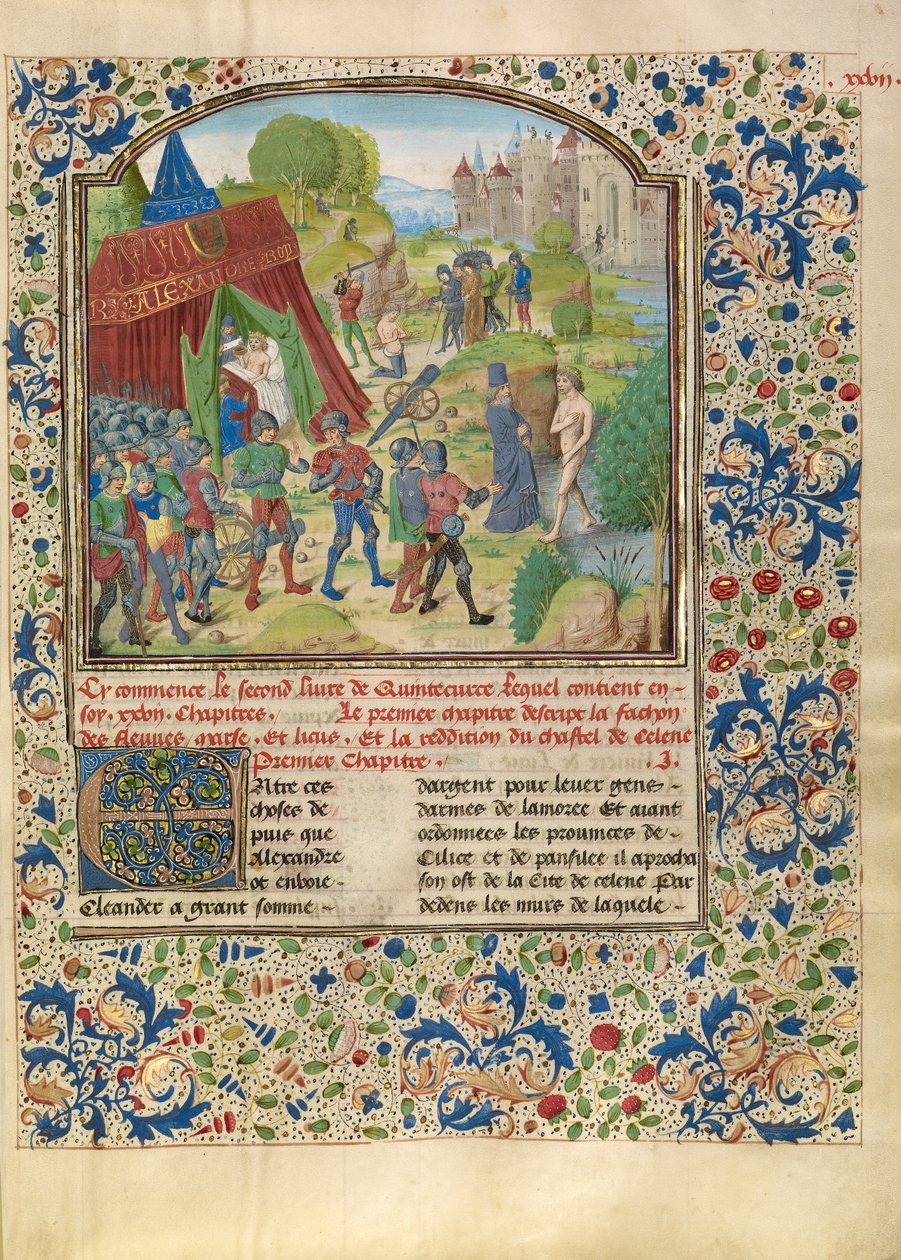 .xxvij.
REX ALEXANDRE ROY
Cy commence le second liure de Quintecurce lequel contient en-
soy .xxvij. Chapitres. Le premier chapitre descript la fachon
des fleuues marse . Et licus . Et la reddition du chastel de Celene
Premier Chapitre . .I.
Entre ces
choses de
puis que
Alexandre
ot enuoie-
Cleander a grant somme-
dargent pour leuer gens-
darmes de lamoree Et aiant
ordonnees les prouinces de-
Cilice et de panfilee il aprocha
son ost de la Cite de celene Par
dedens les murs de laquele-